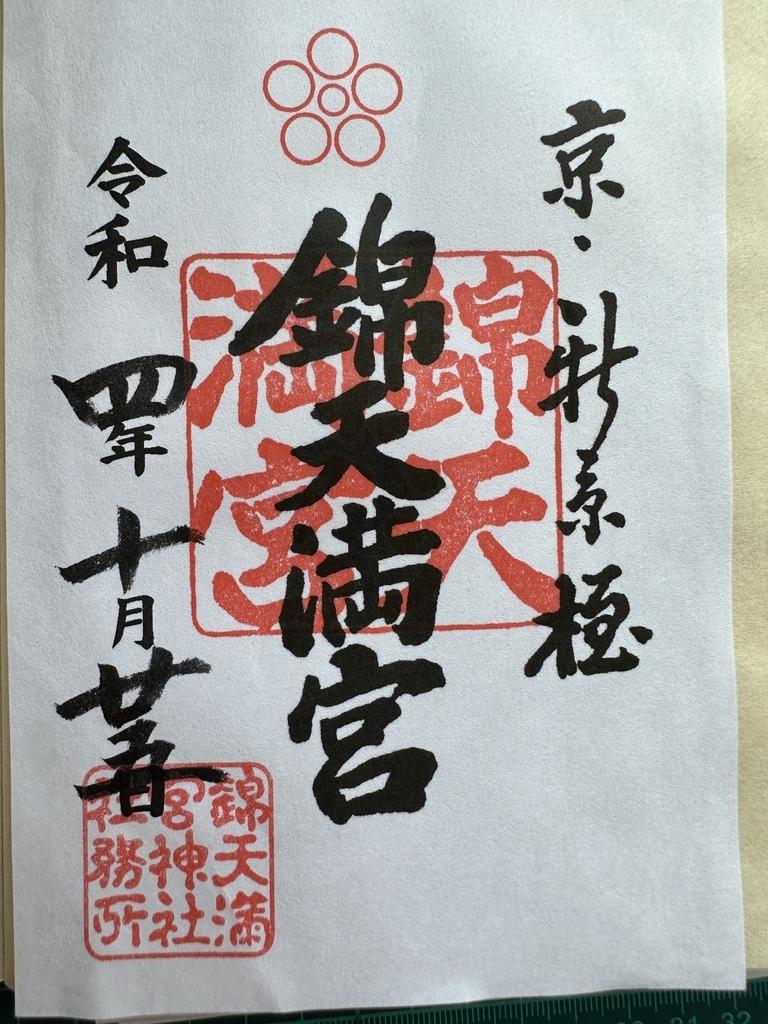 京・新京極
錦天満宮
令和四年十月廿五日
錦天
満宮
錦天満
宮神社
社務所
31 32